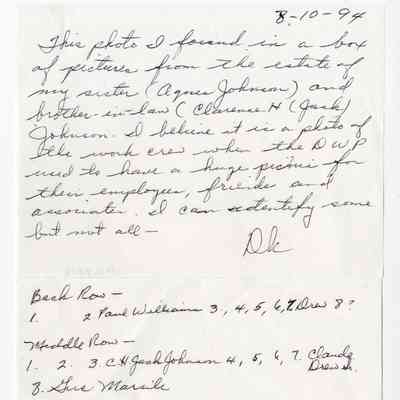 8-10-94
This photo I found in a box
of pictures from the estate of
my sister (Agnes Johnson) and
brother-in-law (Clarence H (Jack)
Johnson. I believe it is a photo of
the work crew when the DWP
used to have a huge picnic for
their employees, friends and
associates. I can identify some
but not all -
Dk
Back Row -
1. 2 Paul Williams 3., 4, 5, 6, 7 Drew 8?
Middle Row -
1. 2. 3. C H Jack Johnson 4, 5, 6, 7. Claude
Drew
8. Gus